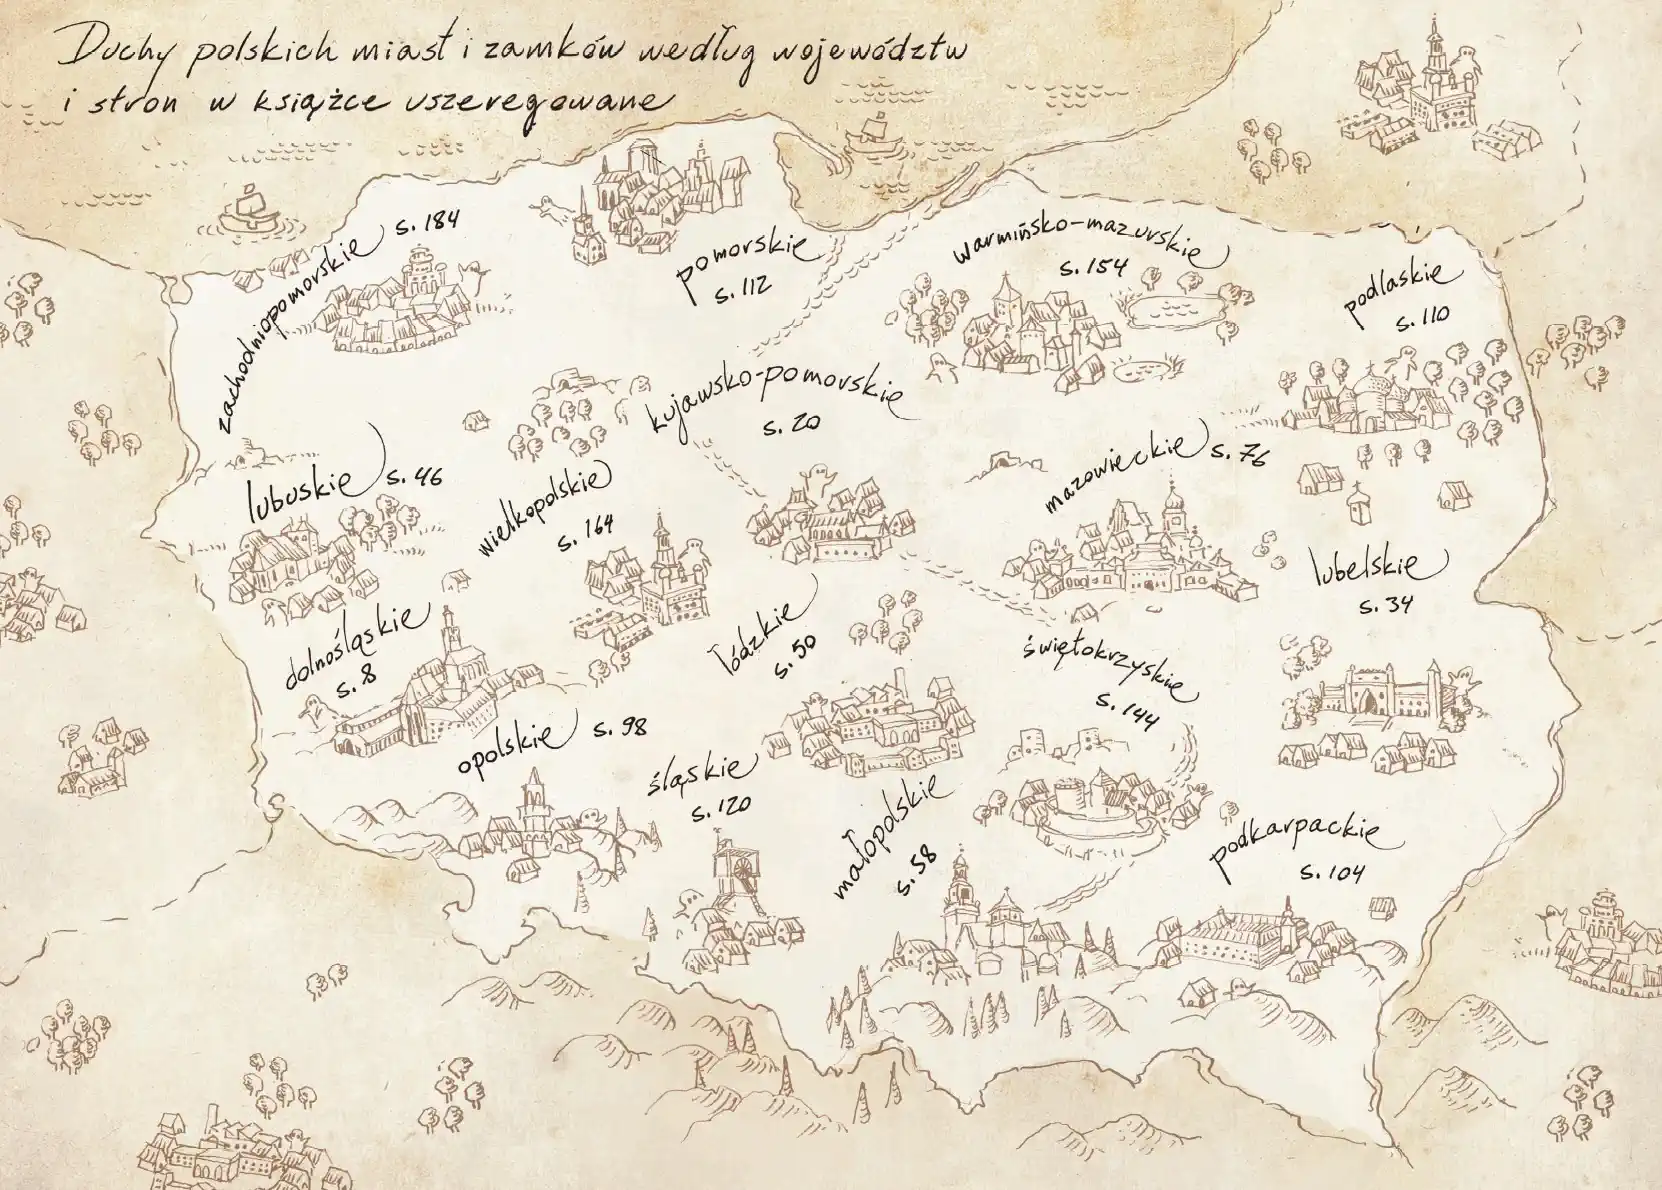 Duchy polskich miast i zamków według województw
i stron w książce uszeregowane
zachodniopomorskie s. 184
pomorskie
s. 112
warmińsko-mazurskie
s. 154
podlaskie
s. 110
kujawsko-pomorskie
s. 20
lubuskie s. 46
wielkopolskie
s. 164
mazowieckie s. 76
lubelskie
s. 34
dolnośląskie
s. 8
łódzkie
s. 50
świętokrzyskie
s. 144
opolskie s. 98
śląskie
s. 120
małopolskie
s. 58
podkarpackie
s. 104